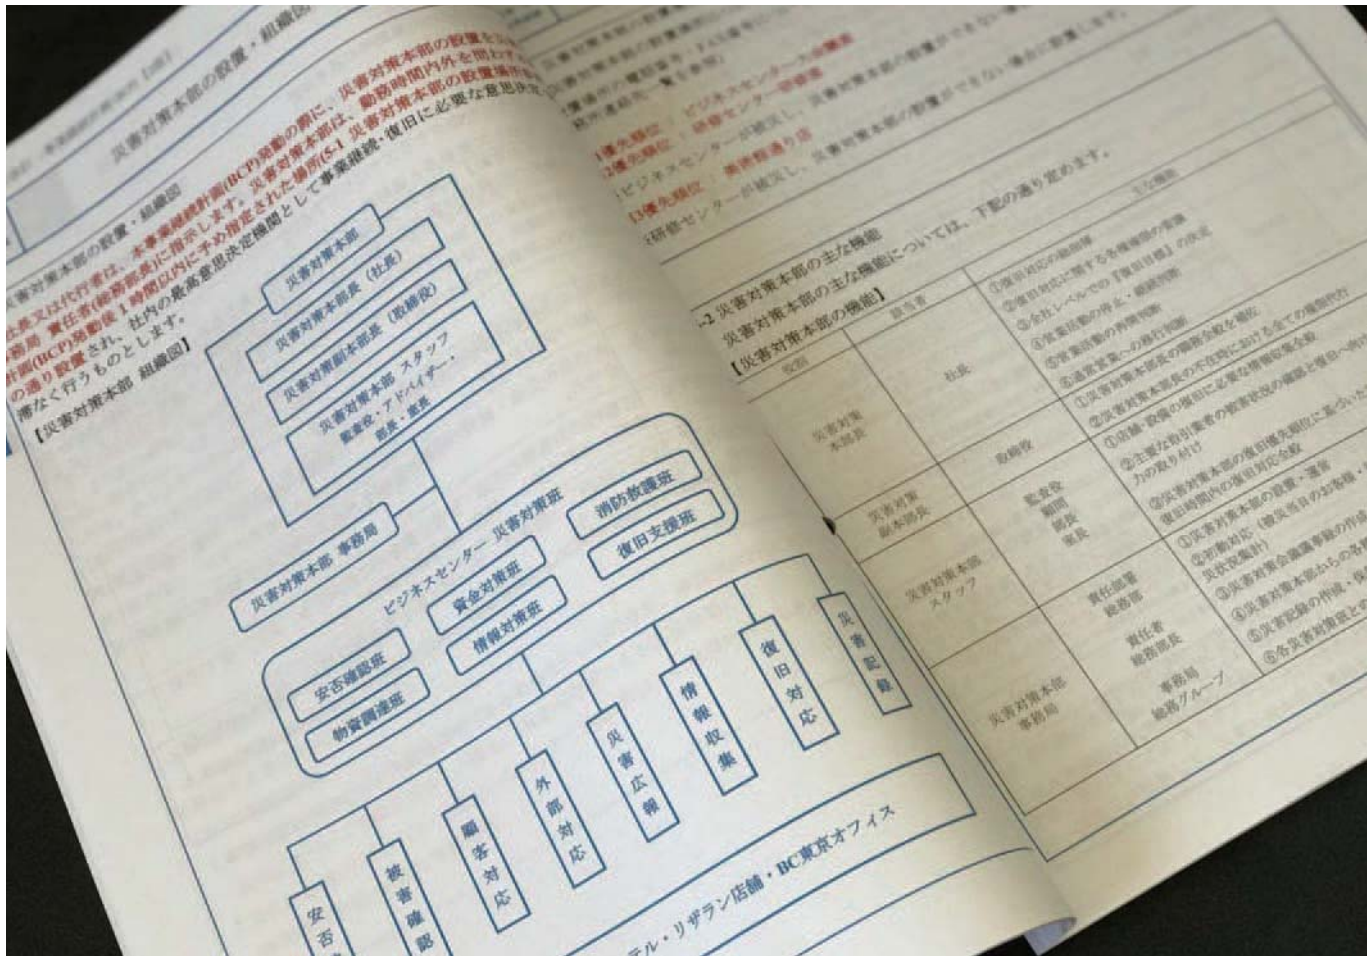 災害対策本部の設置・組織図
災害対策本部の設置・組織図
社長又は代行者は、本事業継続計画(BCP)発動の際に、災害対策本部の設置を
事務局 責任者(総務部長)に指示します。災害対策本部は、勤務時間内外を問わず
計画(BCP)発動後1時間以内に予め指定された場所(5-1 災害対策本部の設置場所
の通り設置され、社内の最高意思決定機関として事業継続・復旧に必要な意思決定
滞なく行うものとします。
【災害対策本部 組織図】
災害対策本部
災害対策本部長(社長)
災害対策副本部長(取締役)
災害対策本部 スタッフ
監査役・アドバイザー・
部長・室長
災害対策本部 事務局
ビジネスセンター 災害対策班
安否確認班
資金対策班
消防救護班
物資調達班
情報対策班
復旧支援班
安否
被害確認
顧客対応
外部対応
災害広報
情報収集
復旧対応
災害記録
テル・リザラン店舗・BC東京オフィス
優先順位 : ビジネスセンター大会議室
2優先順位 : 研修センター研修室
ビジネスセンターが被災し、災害対策本部の設置ができない場合
3優先順位 : 美術館通り店
研修センターが被災し、災害対策本部の設置ができない場合に設置します。
-2 災害対策本部の主な機能
災害対策本部の主な機能については、下記の通り定めます。
【災害対策本部の機能】
役割
担当者
主な機能
災害対策
本部長
社長
①復旧対応の総指揮
②復旧対応に関する各種権限の委譲
③全社レベルでの『復旧目標』の決定
④営業活動の停止・継続判断
⑤営業活動の再開判断
⑥通常営業への移行判断
災害対策
副本部長
取締役
①災害対策本部長の職務全般を補佐
②災害対策本部長の不在時における全ての権限代行
災害対策本部
スタッフ
監査役
顧問
部長
室長
①店舗・設備の復旧に必要な情報収集全般
②主要な取引業者の被害状況の確認と復旧へ向け
力の取り付け
③災害対策本部の復旧優先順位に基づいた
復旧時間内の復旧対応全般
災害対策本部
事務局
責任部署
総務部
責任者
総務部長
事務局
総務グループ
①災害対策本部の設置・運営
②初動対応(被災当日のお客様・
災状況集計)
③災害対策会議議事録の作成
④災害対策本部からの各種
⑤災害記録の作成・
⑥各災害対策班と